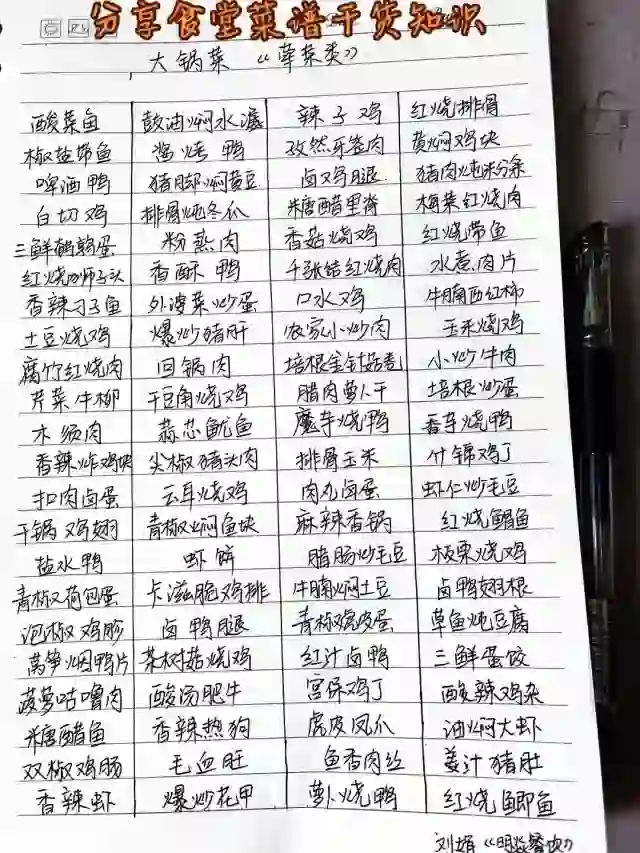 分享食堂菜谱干货知识
大锅菜 《荤菜类》
酸菜鱼 鼓油焖水 辣子鸡 红烧排骨
椒盐带鱼 酱烤鸭 孜然牙签肉 黄焖鸡块
啤酒鸭 猪脚焖黄豆 卤鸡腿 猪肉炖粉条
白切鸡 排骨炖冬瓜 糖醋里脊 梅菜红烧肉
三鲜鹌鹑蛋 粉蒸肉 香菇烧鸡 红烧带鱼
红烧狮子头 香酥鸭 千张结红烧肉 水煮肉片
香辣刁子鱼 外婆菜炒蛋 口水鸡 牛腩西红柿
土豆烧鸡 爆炒猪肝 农家小炒肉 玉米烧鸡
腐竹红烧肉 回锅肉 培根金针菇卷 小炒牛肉
芹菜牛柳 干豆角烧鸡 腊肉萝卜干 培根炒蛋
木须肉 蒜芯鱿鱼 魔芋烧鸭 香芋烧鸭
香辣炸鸡块 尖椒猪头肉 排骨玉米 什锦鸡丁
扣肉卤蛋 云耳烧鸡 肉丸卤蛋 虾仁炒毛豆
干锅鸡翅 青椒焖鱼块 麻辣香锅 红烧鲳鱼
盐水鸭 虾饼 腊肠炒毛豆 板栗烧鸡
青椒荷包蛋 卡滋脆鸡排 牛腩焖土豆 卤鸭翅根
泡椒鸡胗 卤鸭腿 青椒虎皮蛋 草鱼炖豆腐
莴笋烟鸭片 茶树菇烧鸡 红汁卤鸭 三鲜蛋饺
菠萝咕噜肉 酸汤肥牛 宫保鸡丁 酸辣鸡杂
糖醋鱼 香辣热狗 虎皮凤爪 油焖大虾
双椒鸡肠 毛血旺 鱼香肉丝 姜汁猪肚
香辣虾 爆炒花甲 萝卜烧鸭 红烧鲫鱼
刘婿《明 餐饮》